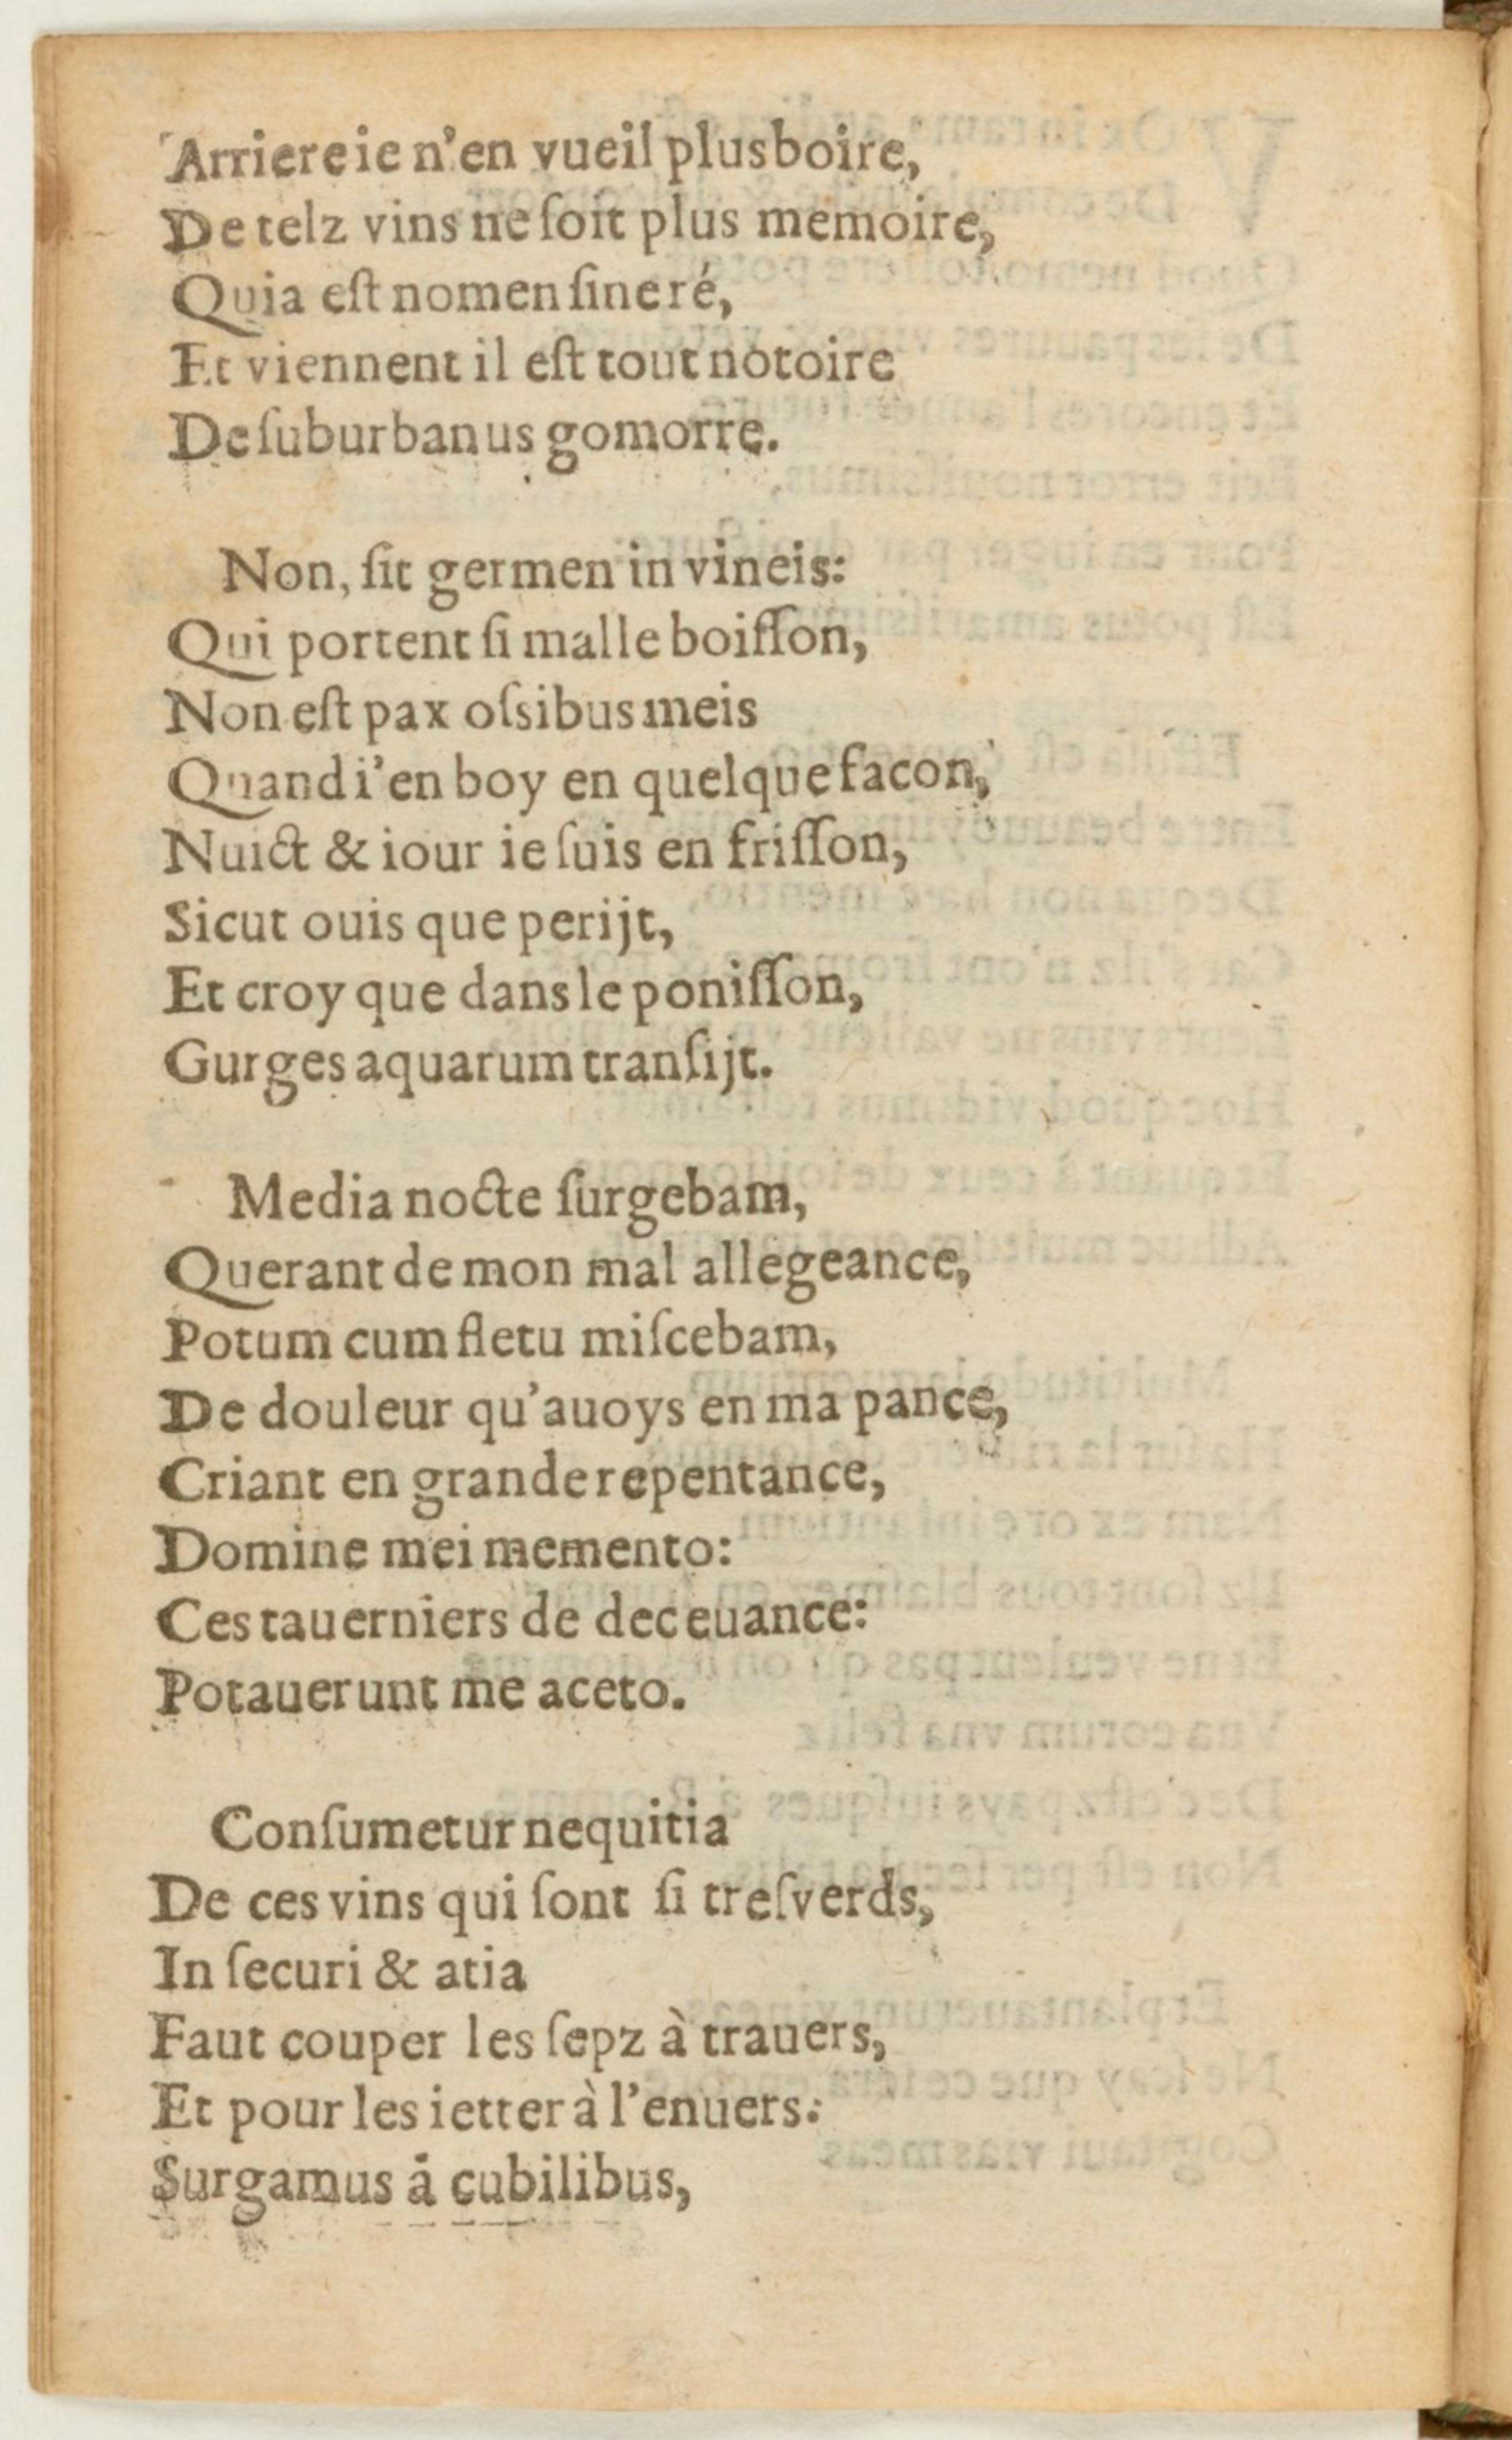 Arriere ie n'en vueil plus boire,
De telz vins ne ſoit plus memoire,
Quia eſt nomen ſine ré,
Et viennent il eſt tout notoire
De ſuburbanus gomorre.
Non, ſit germen in vineis:
Qui portent ſi malle boiſſon,
Non eſt pax oſsibus meis
Quand i'en boy en quelque facon,
Nuict & iour ie ſuis en friſſon,
Sicut ouis que perijt,
Et croy que dans le poniſſon,
Gurges aquarum tranſijt.
Media nocte ſurgebam,
Querant de mon mal allegeance,
Potum cum fletu miſcebam,
De douleur qu'auoys en ma pance,
Criant en grande repentance,
Domine mei memento:
Ces tauerniers de deceuance:
Potauerunt me aceto.
Conſumetur nequitia
De ces vins qui ſont ſi treſverds,
In ſecuri & atia
Faut couper les ſepz à trauers,
Et pour les ietter à l'enuers:
Surgamus á cubilibus,